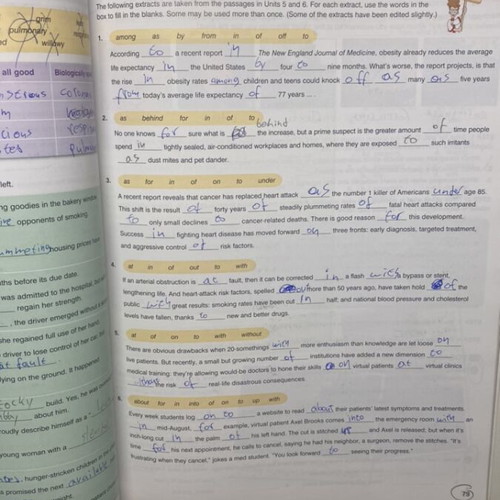 The following extracts are taken from the passages in Units 5 and 6. For each extract, use the words in the
box to fill in the blanks. Some may be used more than once. (Some of the extracts have been edited slightly.)
grim
pulmonary
willowy
all good
left.
ng goodies in the bakery window
opponents of smoking
housing prices
ths before its due date.
was admitted to the hospital,
regain her strength
, the driver emerged without
she regained full use of her hand
driver to lose control of her car
at fault
lying on the ground. It happened
stocky build. Yes, he was
about him.
roudly describe himself as a
young woman with a
, hunger-stricken children
promised the next available
1.
among as by from in of off to
According to a recent report in The New England Journal of Medicine, obesity already reduces the average
life expectancy in the United States by four to nine months. What's worse, the report projects, is that
the rise in obesity rates among children and teens could knock off as many as five years
from today's average life expectancy of 77 years ...
2.
as behind for in of to
behind
No one knows for sure what is the increase, but a prime suspect is the greater amount of time people
spend in tightly sealed, air-conditioned workplaces and homes, where they are exposed to such irritants
as dust mites and pet dander.
3.
as for in of on to under
A recent report reveals that cancer has replaced heart attack as the number 1 killer of Americans under age 85.
This shift is the result of forty years of steadily plummeting rates of fatal heart attacks compared
to only small declines to cancer-related deaths. There is good reason for this development.
Success in fighting heart disease has moved forward on three fronts: early diagnosis, targeted treatment,
and aggressive control of risk factors.
4.
at in of out to with
If an arterial obstruction is at fault, then it can be corrected in a flash with bypass or stent,
lengthening life. And heart-attack risk factors, spelled out more than 50 years ago, have taken hold of the
public with great results: smoking rates have been cut in half; and national blood pressure and cholesterol
levels have fallen, thanks to new and better drugs.
5.
at of on to with without
There are obvious drawbacks when 20-somethings with more enthusiasm than knowledge are let loose on
live patients. But recently, a small but growing number of institutions have added a new dimension to
medical training: they're allowing would-be doctors to hone their skills on virtual patients at virtual clinics
without the risk of real-life disastrous consequences.
6.
about for in into of on to up with
Every week students log on to a website to read about their patients' latest symptoms and treatments.
in mid-August, for example, virtual patient Axel Brooks comes into the emergency room with an
inch-long cut in the palm of his left hand. The cut is stitched up and Axel is released, but when it's
time for his next appointment, he calls to cancel, saying he had his neighbor, a surgeon, remove the stitches. "It's
frustrating when they cancel," jokes a med student. "You look forward to seeing their progress."
75